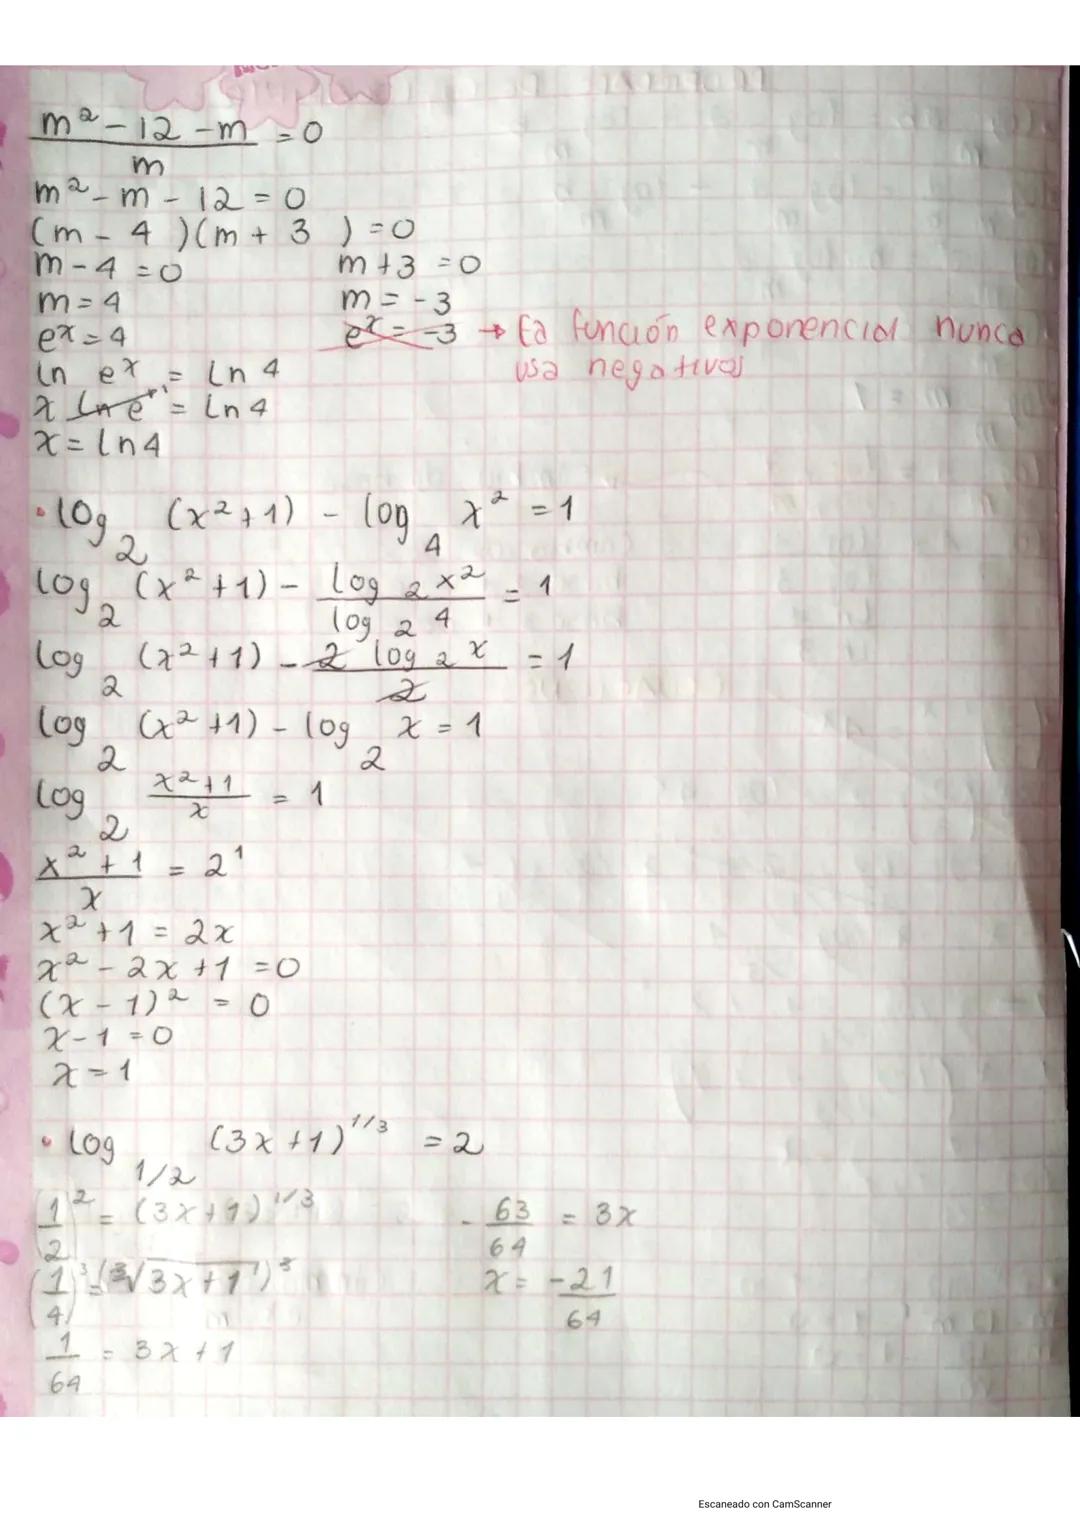 m² - 12 - m / m = 0
m² - m - 12 = 0
(m - 4 )(m + 3 ) = 0
m - 4 = 0    m + 3 = 0
m = 4    m = -3
eˣ = 4    eˣ = -3 → La función exponencial nunca
usa negativos
ln eˣ = ln 4
x ln e = ln 4
x = ln 4
• log₂ (x² + 1) - log₄ x² = 1
log₂ (x² + 1) - log₂ x² / log₂ 4 = 1
log₂ (x² + 1) - 2 log₂ x / 2 = 1
log₂ (x² + 1) - log₂ x = 1
log₂ x² + 1 / x = 1
x² + 1 / x = 2¹
x² + 1 = 2x
x² - 2x + 1 = 0
(x - 1)² = 0
x - 1 = 0
x = 1
• log 1/2 (3x + 1)^1/3 = 2
(1/2)² = (3x + 1)^1/3
(1/4)³ = (³√3x + 1)³
1/64 = 3x + 1
- 63/64 = 3x
x = -21/64
Escaneado con CamScanner